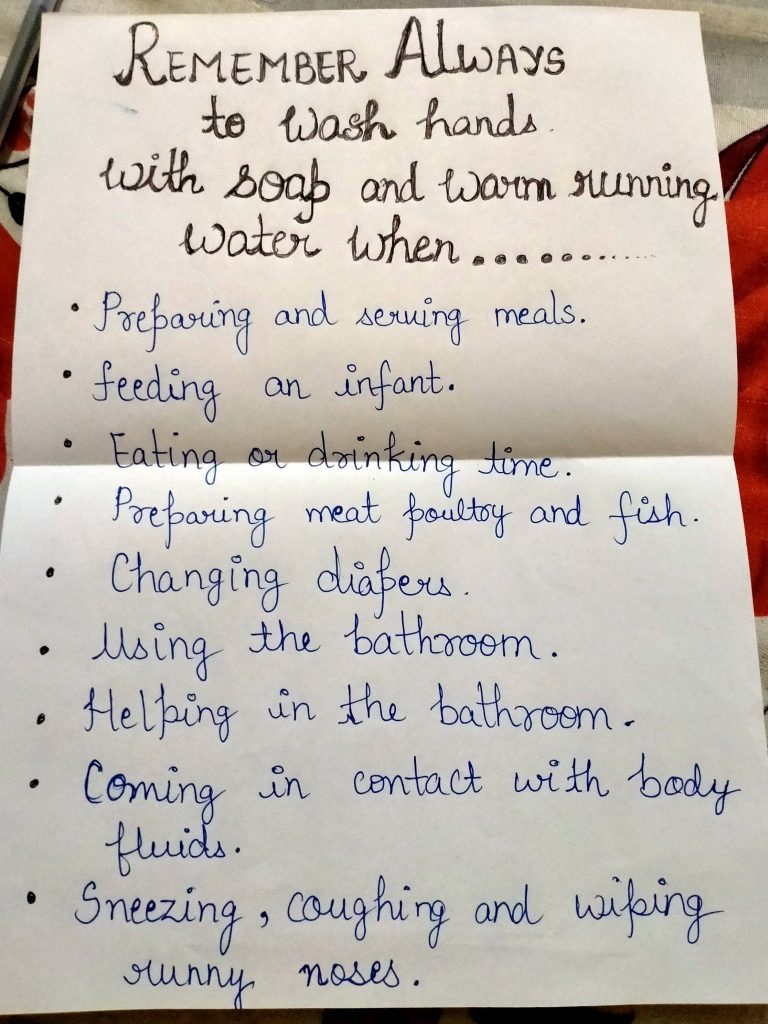 REMEMBER ALWAYS
to wash hands.
with soap and warm running
water when..............
• Preparing and serving meals.
• feeding an infant.
• Eating or drinking time.
• Preparing meat poultry and fish.
• Changing diapers.
• Using the bathroom.
• Helping in the bathroom.
• Coming in contact with body
fluids.
• Sneezing, coughing and wiping
runny noses.